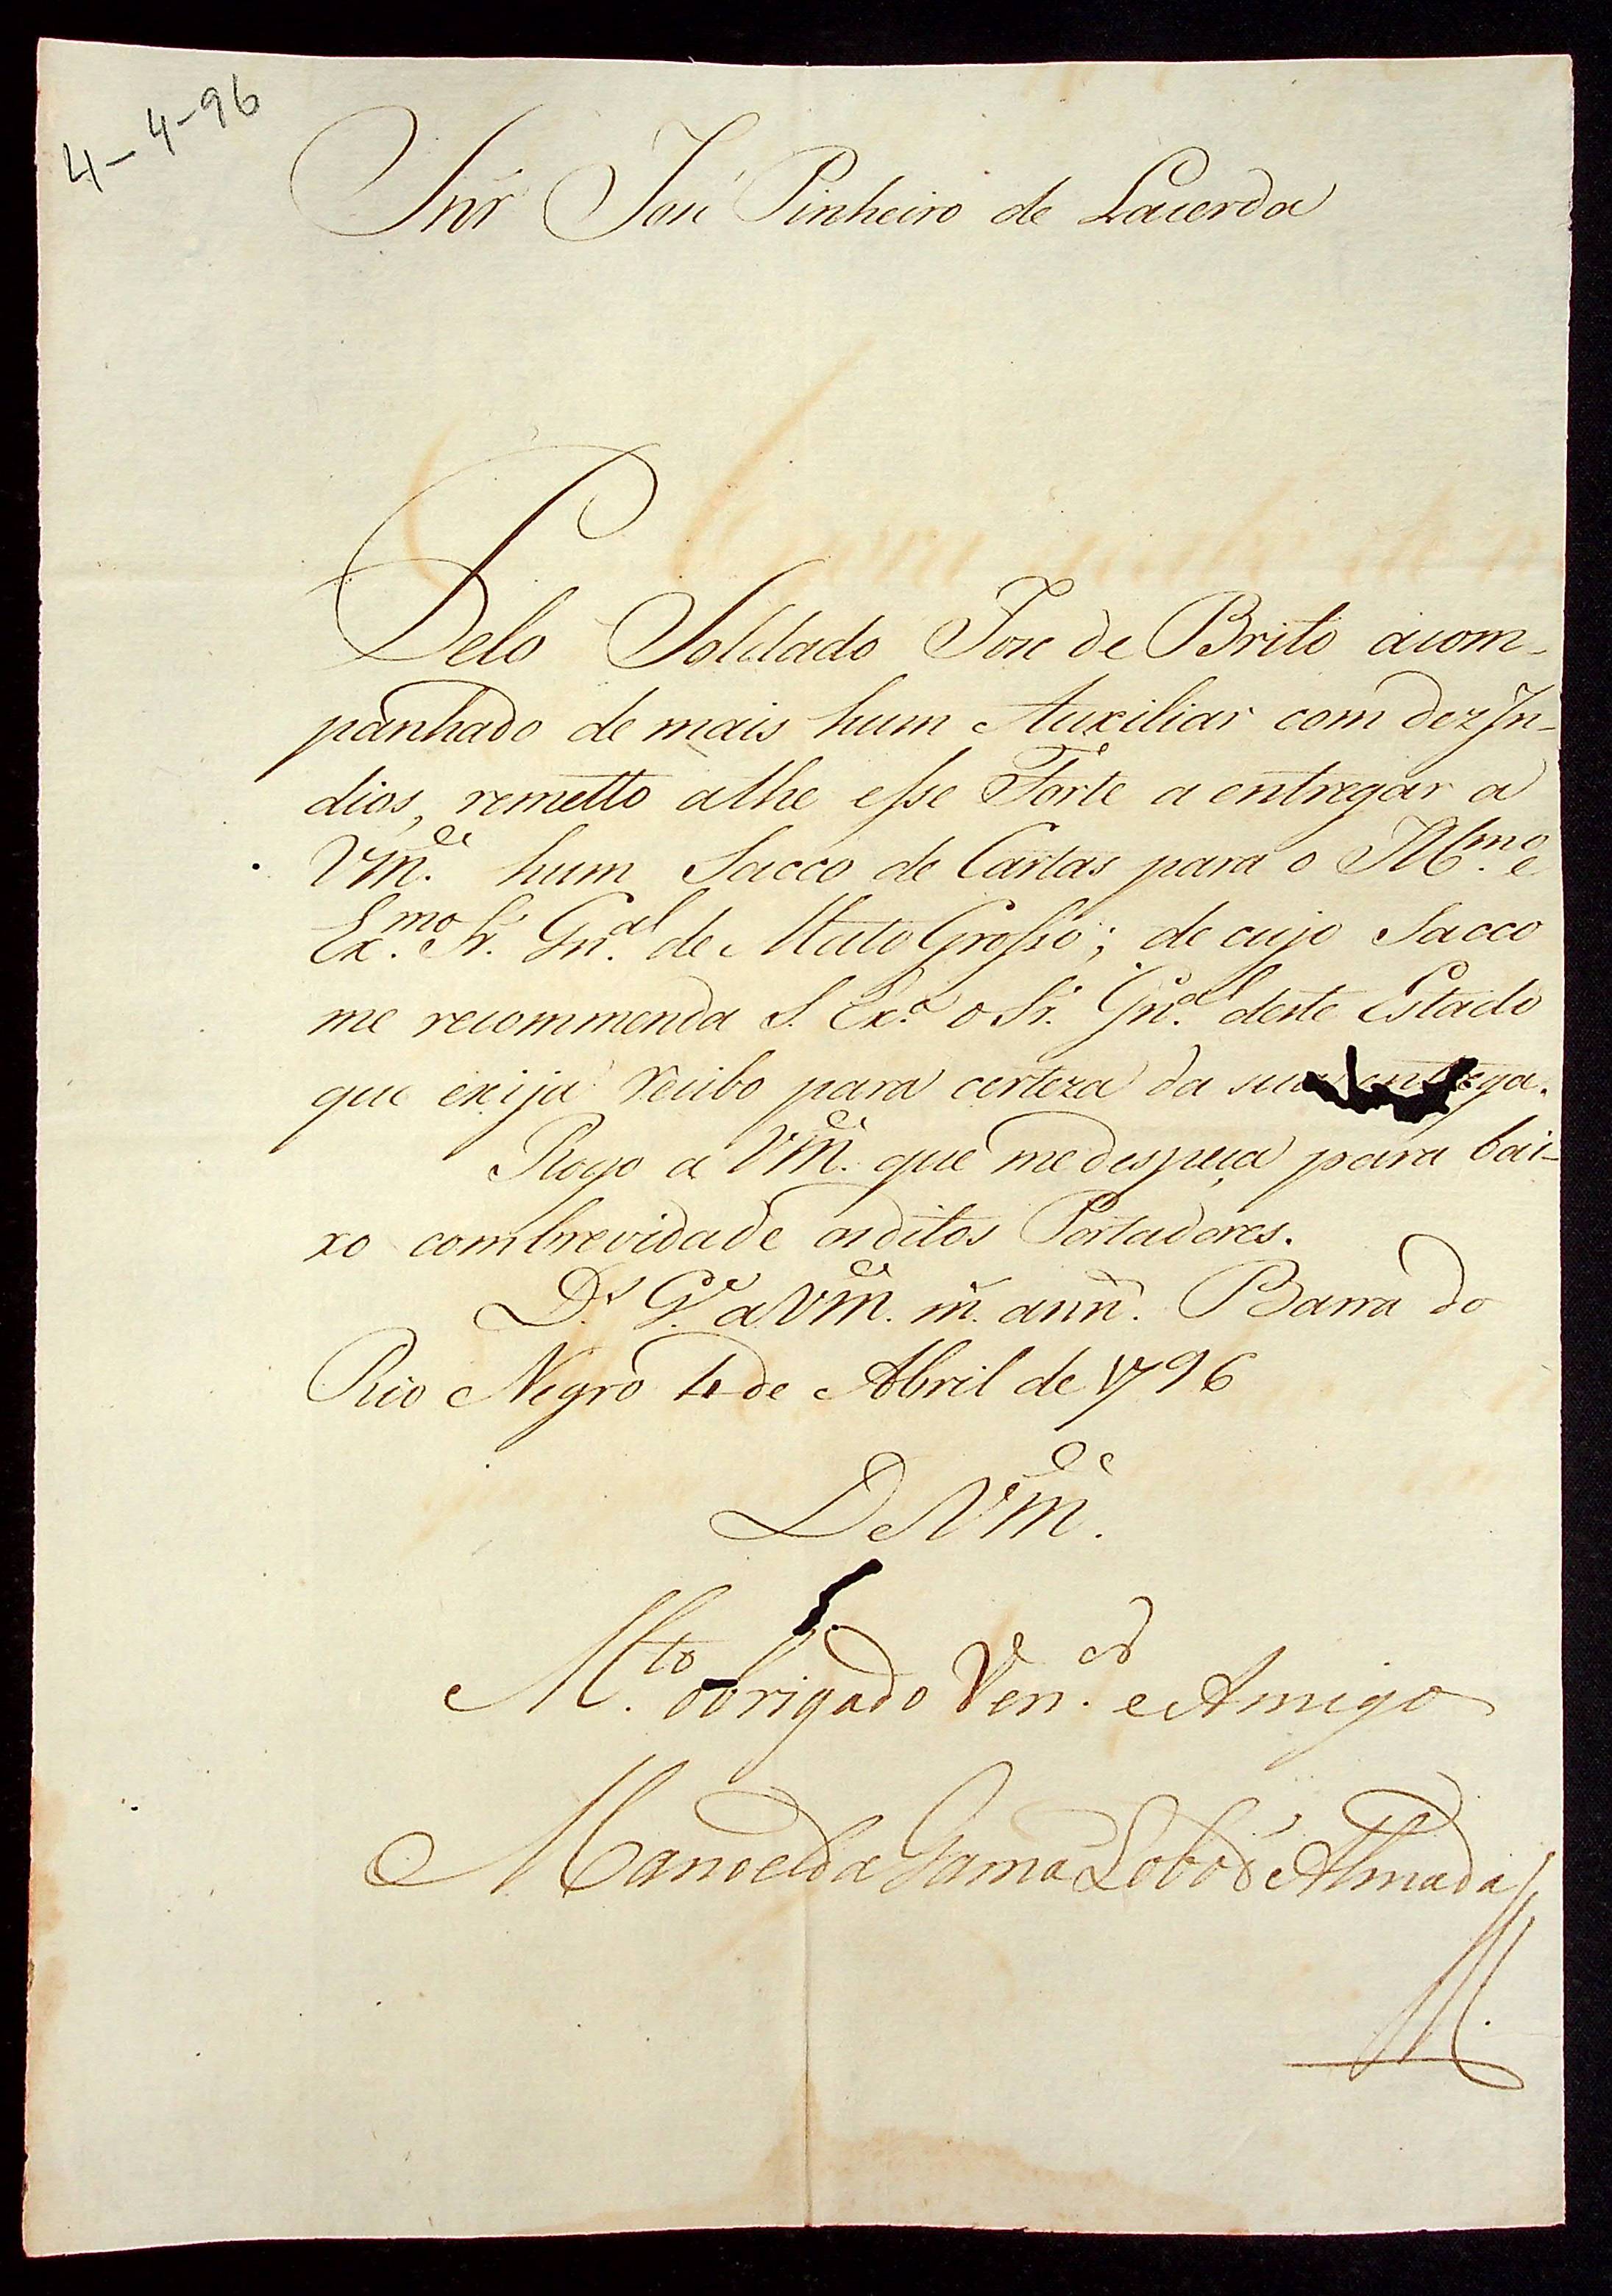 4-4-96
Snr̃ José Pinheiro de Lacerda
Pelo Soldado Joze de Brito acom-
panhado de mais hum Auxiliar com dez In-
dios, remetto athe esse Forte a entregar a
Vm.ce hum Sacco de Cartas para o Ill.mo e
Ex.mo Sr. Gn.al de Mato Grosso; de cujo Sacco
me recommenda S. Ex.a o Sr. Gn.al deste Estado
que exija recibo para certeza da sua entrega.
Rogo a Vm.ce que me despeça para bai-
xo com brevidade os ditos Portadores.
D.s G.e a Vm.ce m.s ann.s Barra do
Rio Negro 4 de Abril de 1796
De Vm.ce
M.to obrigado Ven.or e Amigo
Manoel da Gama Lobo d'Almada